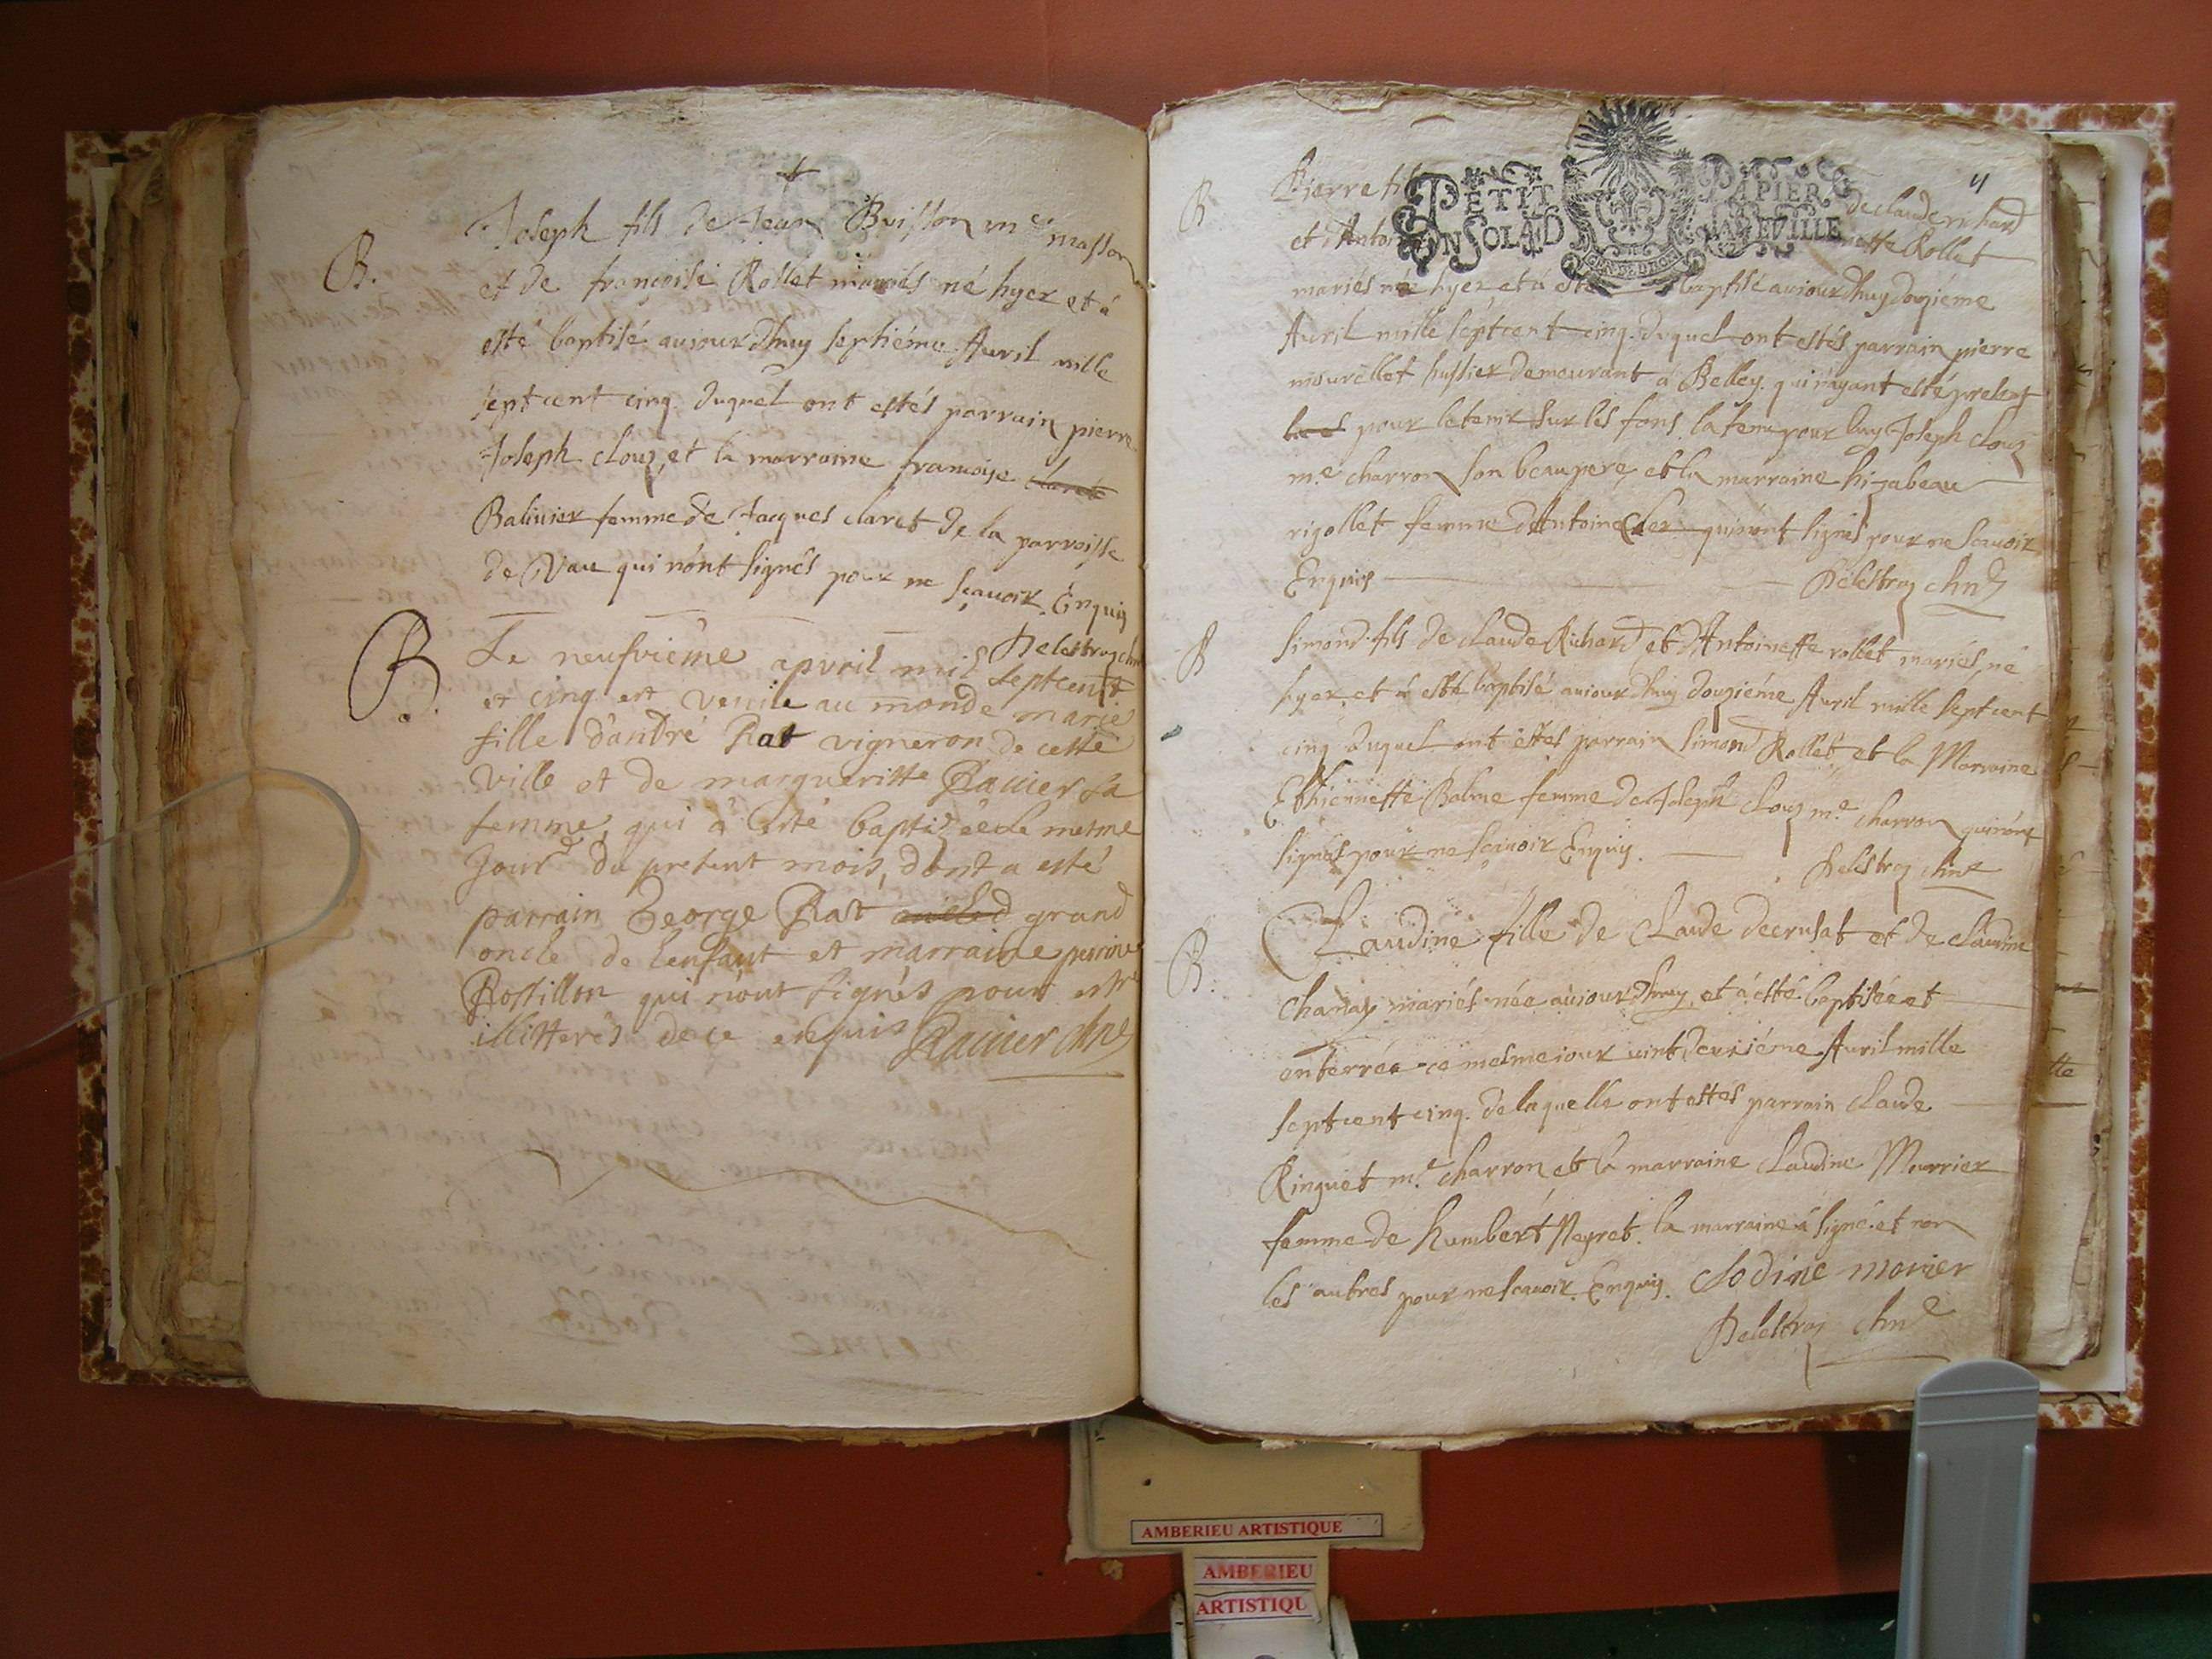 B.
Joseph fils de Jean Buisson me masson
et de françoise Rollet mariés né hyer et à
esté baptisé aujourdhuy septiéme Avril mille
sept cent cinq. duquel ont estés parrain pierre
Joseph clouz et la marraine francoise claret
Balivier femme de Jacques claret de la parroisse
de Vau qui nónt signés pour ne sçavoir. Enquis
Delestroz chne
B.
Le neufvieme apvril mil septcent
et cinq est venüe au monde marie
fille d'andré Rat vigneron de cette
ville et de margueritte Ravier sa
femme, qui a esté baptizée le mesme
Jour du present mois, dont a esté
parrain George Rat grand
oncle de lenfant et marraine perrine
Rostillon qui n'ont signés pour estre
illitterés de ce enquis Ravier chne
4
B
PETIT PAPIER
EN SOLD LA FEUILLE
GEN. DE DIJON
Pierre fils de claude richard
et dAntoinette Rollet
mariés né hyer et à esté baptisé aujourdhuy douziéme
Avril mille septcent cinq. duquel ont estés parrain pierre
mourellet hussier demeurant à Belley. qui n'ayant esté present
pour le tenir sur les fons. la tenu pour luy Joseph clouz
me charron son beaupere, et la marraine hizabeau
rigollet femme dAntoine qui nónt signés pour ne scavoir
Enquis Delestroz chne
B
Simond fils de claude Richard et dAntoinette rollet mariés, né
hyer et à esté baptisé aujourdhuy douziéme Avril mille septcent
cinq duquel ont estés parrain Simond Rollet et la Marraine
Ethiennette Balme femme de Joseph clouz me charron qui nónt
signés pour ne sçavoir Enquis.
Delestroz chne
B.
Claudine fille de Claude decrusat et de claudine
Chanay mariés née aujourdhuy, et à esté baptisée et
enterrée ce mesme jour vint deuxiéme Avril mille
septcent cinq. de laquelle ont estés parrain claude
Ringuet me charron et la marraine Claudine Mourrier
femme de humbert Neyret. la marraine à signé et non
les autres pour ne scavoir. Enquis. Clodine morier
Delestroz chne
AMBERIEU ARTISTIQUE
AMBERIEU
ARTISTIQU